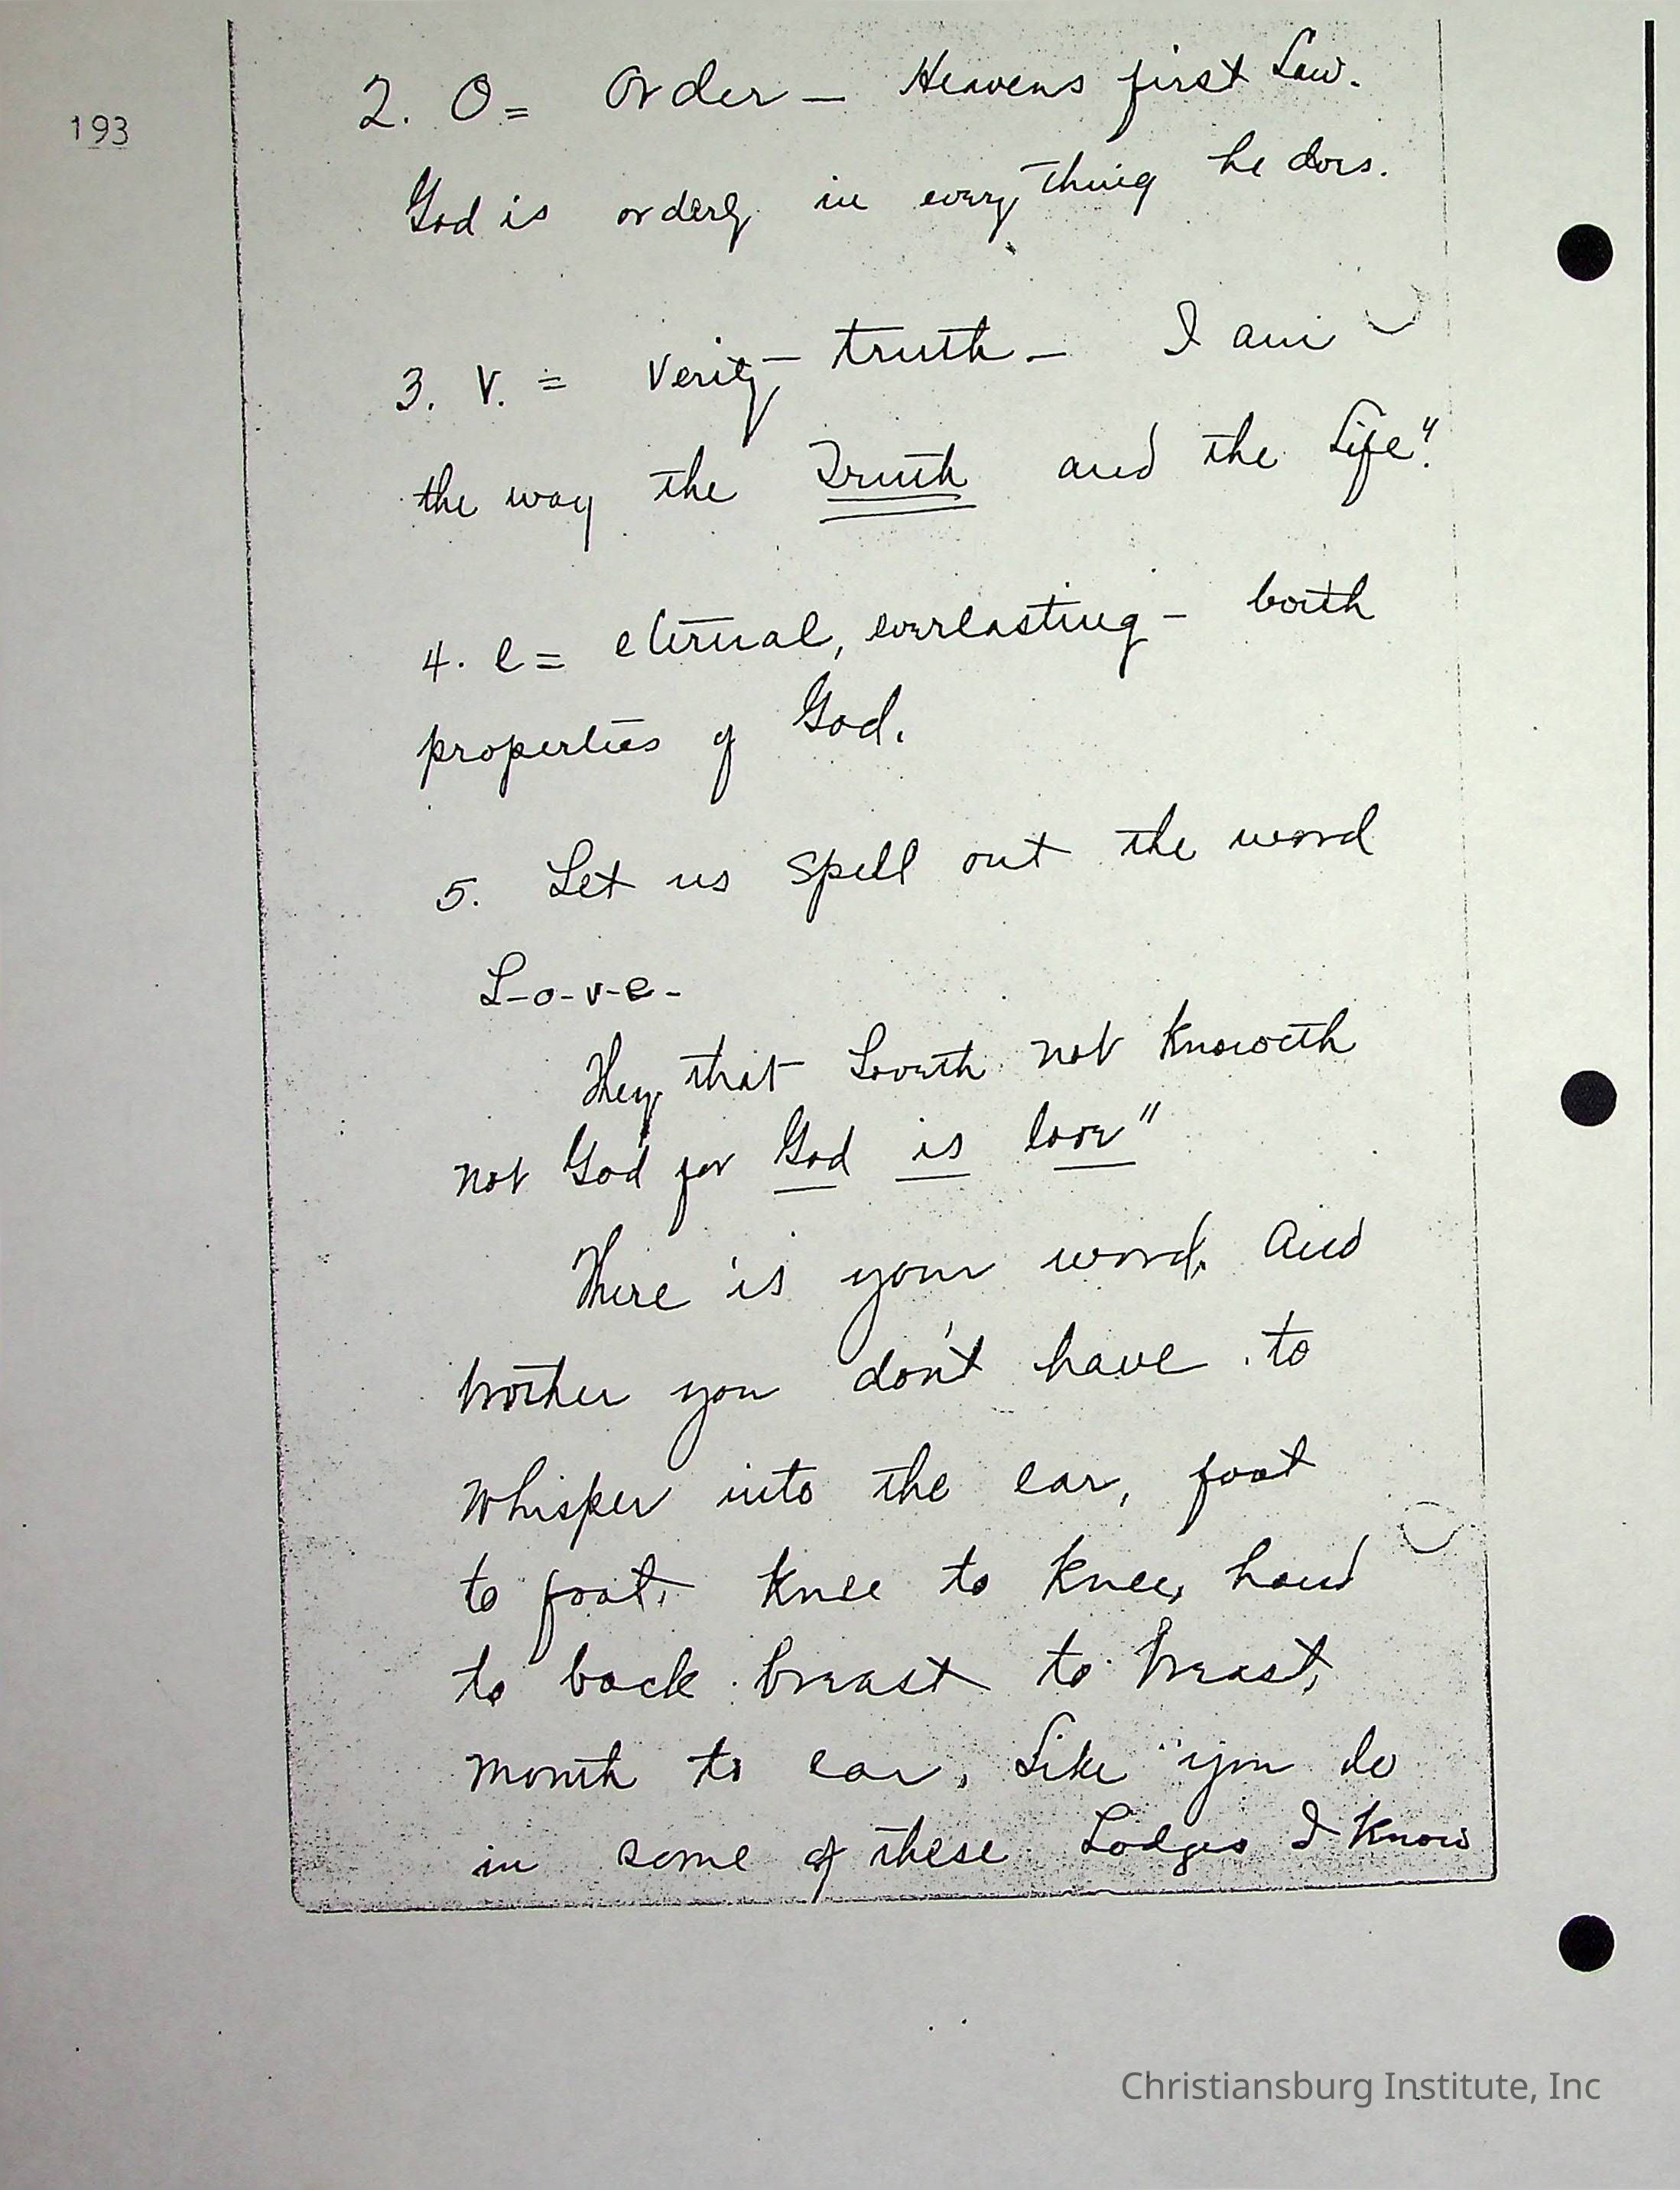 193
2. O = Order — Heavens first Law.
God is orderly in every thing he does.
3. V. = Verity — truth — I am
the way the Truth and the Life."
4. e = eternal, everlasting — both
properties of God.
5. Let us spell out the word
L-o-v-e-
They that Loveth not Knoweth
not God for God is love"
There is your word. And
brother you don't have to
Whisper into the ear, foot
to foot, Knee to Knee, hand
to back breast to breast,
Mouth to ear, Like you do
in some of these Lodges I Know
Christiansburg Institute, Inc